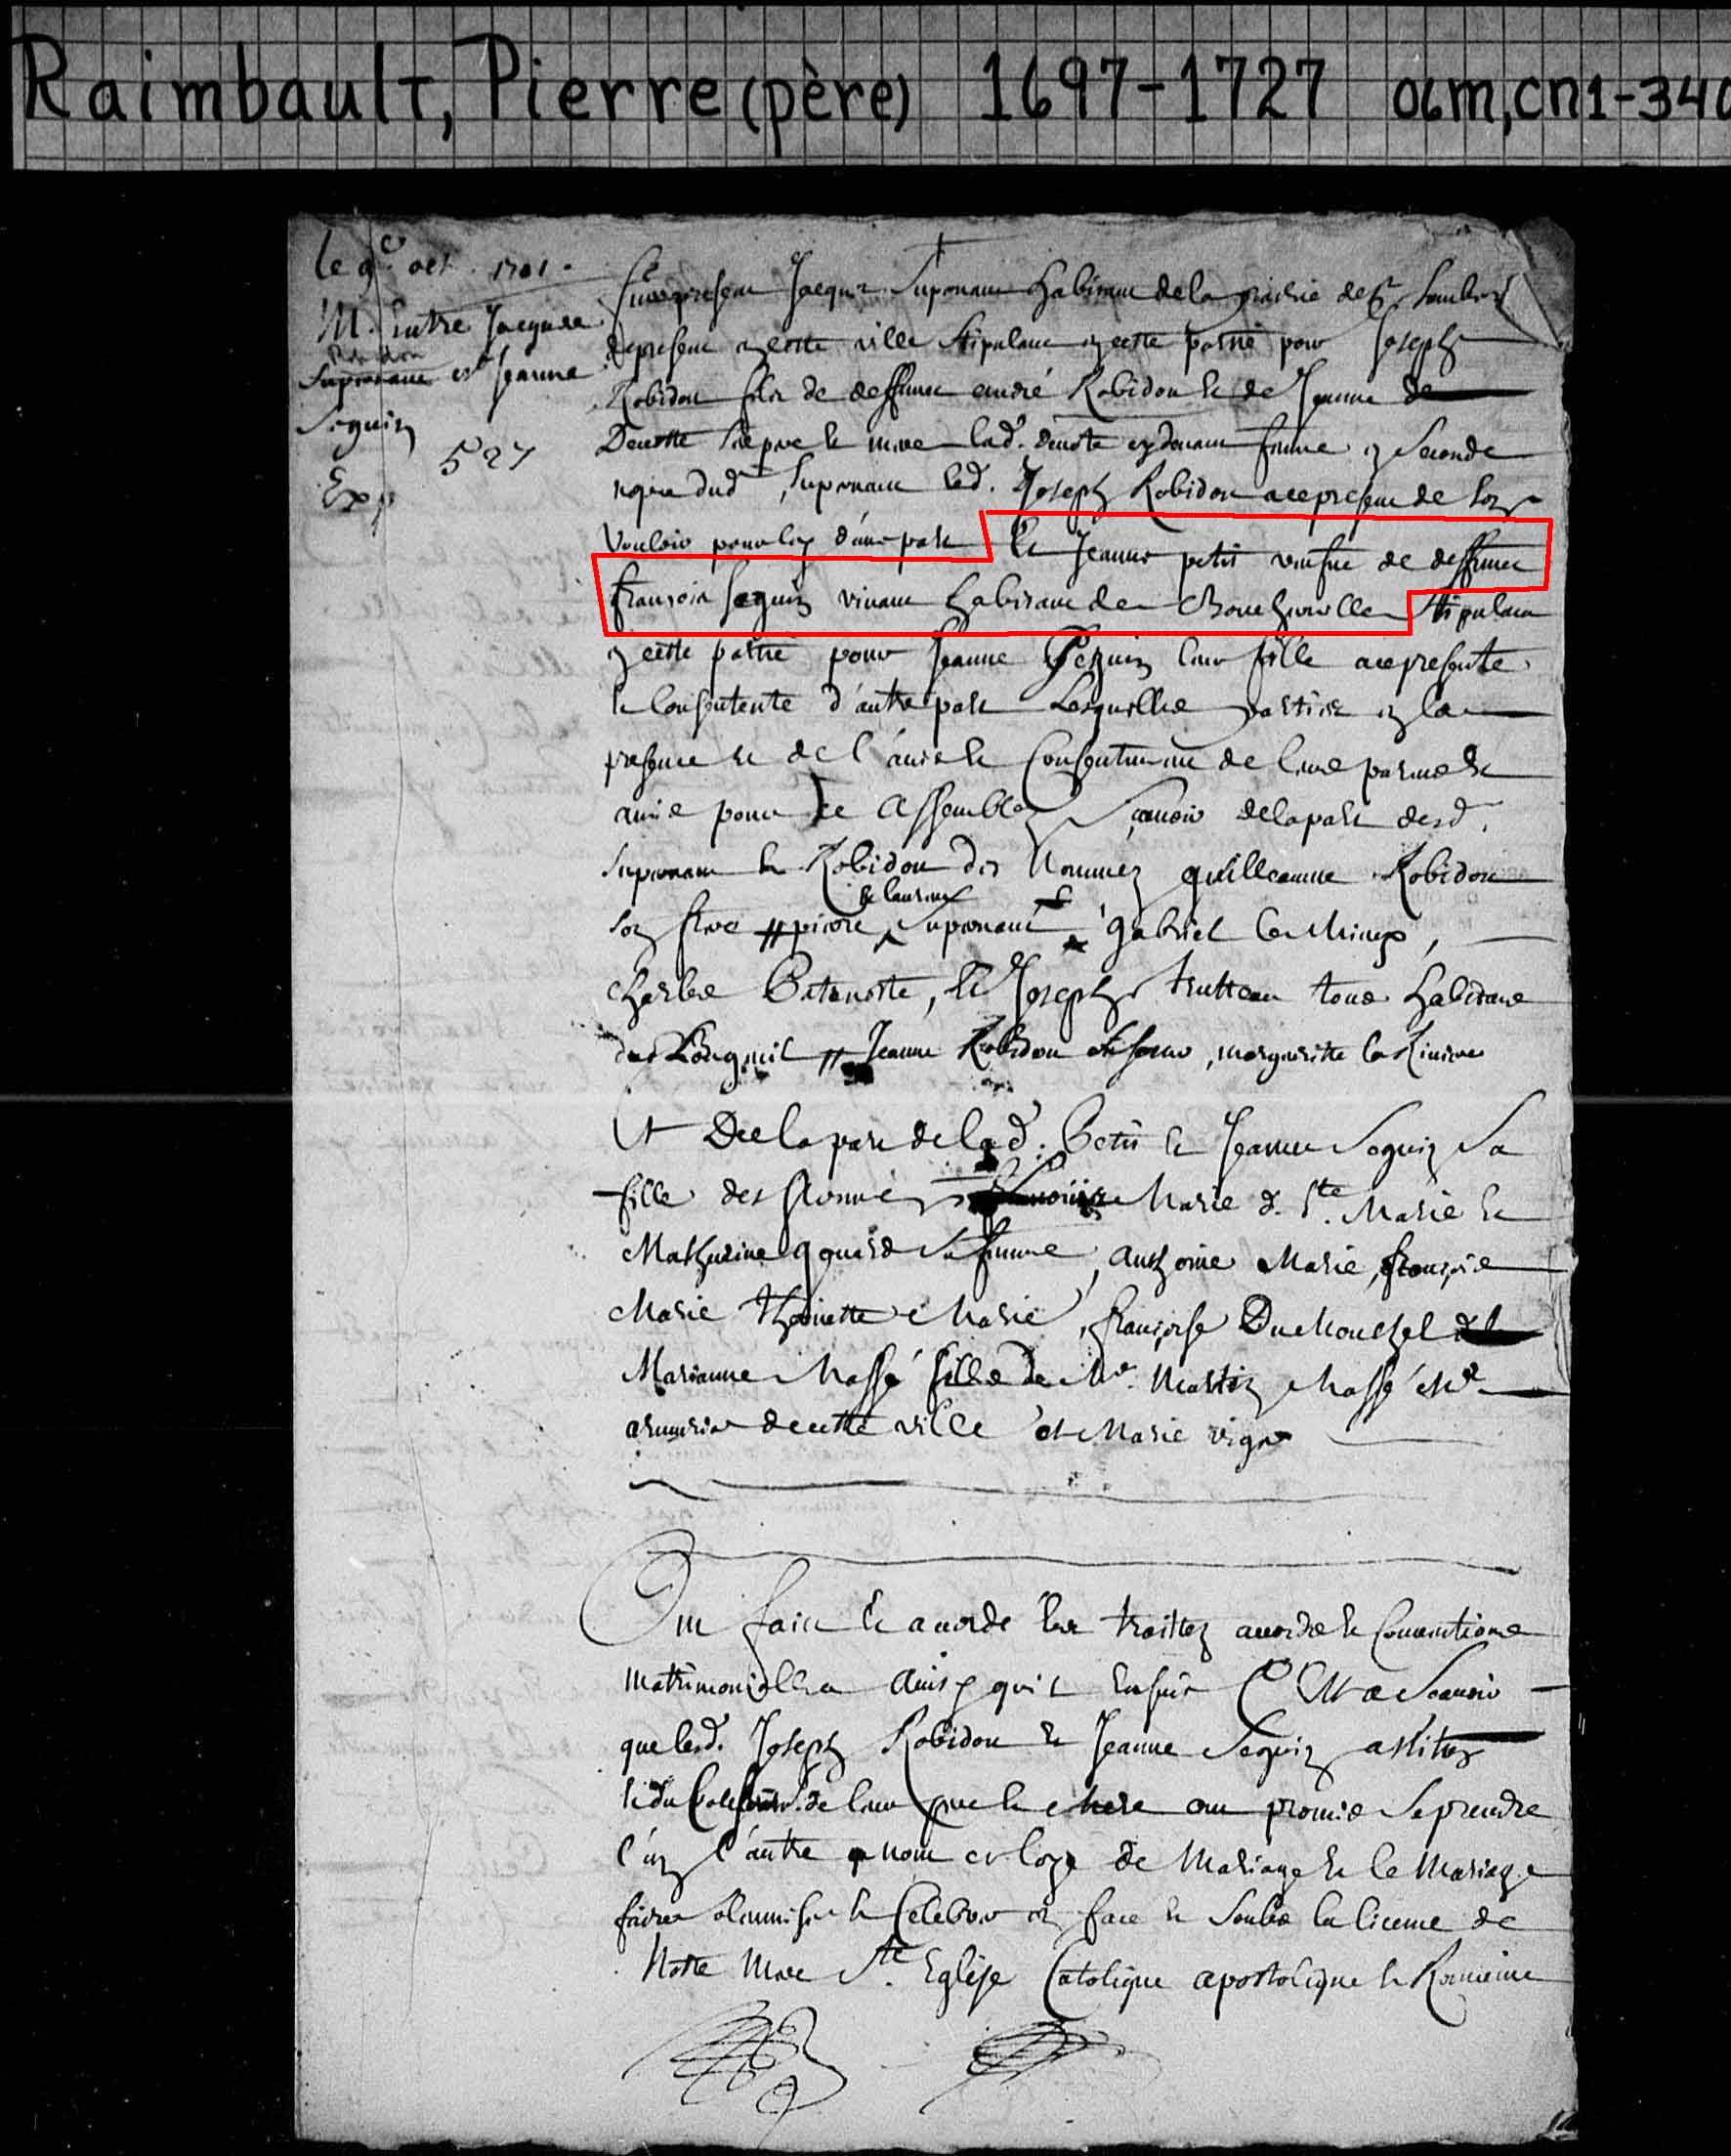 Raimbault, Pierre (père) 1697-1727 06m,cn1-340
le 9e oct. 1701.
M. Entre Jacques
Robidou
Supernant et Jeanne
Seguin
527
Exp
Jacques Supernant habitant de la prairie de St Lambert
de present en cette ville stipulant en cette partie pour Joseph
Robidou fils de deffunct André Robidou et de Jeanne de
Denotte ses pere et mere lad. denote epouse femme en seconde
nopce dud. Supernant led. Joseph Robidou a ce present de son
vouloir pour luy d'une part Et Jeanne petit veufve de deffunct
françois seguin vivant habitant de Boucherville stipulant
en cette partie pour Jeanne Seguin leur fille a ce presente
et Consentente d'autre part Lesquelles parties en la
presence et de l'avis et Consentement de leurs parens et
amis pour ce assemblez Sçavoir de la part desd.
Supernant et Robidou des Nommez guilleaume Robidou
son frere # pierre et laurens Supernant gabriel
Charles, et Joseph trutteau tous habitans
dud Longueil # Jeanne Robidou sa soeur, marguerite
Et De la part de lad. Petit et Jeanne Seguin Sa
fille des Marie d. Ste. Marie et
Mathurine gouard sa femme, anthoine Marie, françois
Marie, Marie, françoise DuMouchel
Marianne Massé fille de Mr. Martin Massé Me
armurier de cette ville et Marie
Ont faict et acordé les traittez acords et Conventions
Matrimonielles ainsy qu'il Ensuit C'Est a Scavoir
que lesd. Joseph Robidou et Jeanne Seguin assistez
et du de leur pere et Mere ont promis Se prendre
l'un l'autre p nom et loyx de Mariage et le Mariage
faire solennise et Celebrer en face et Soubs la licence de
Notre Mere Ste. Eglise Catolique apostolique et Romaine